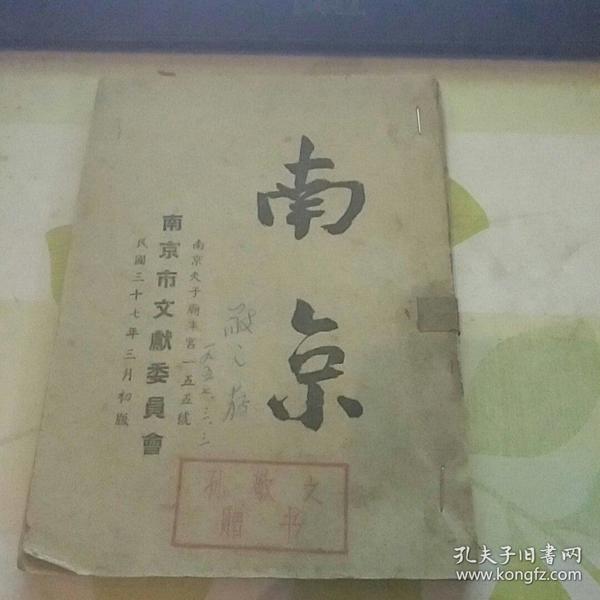 南京
南京夫子廟東宮一五五號
南京市文獻委員會
民國三十七年三月初版
敬之存
一九五七.三.三
孔敬之
赠书
孔夫子旧书网
www.kongfz.com